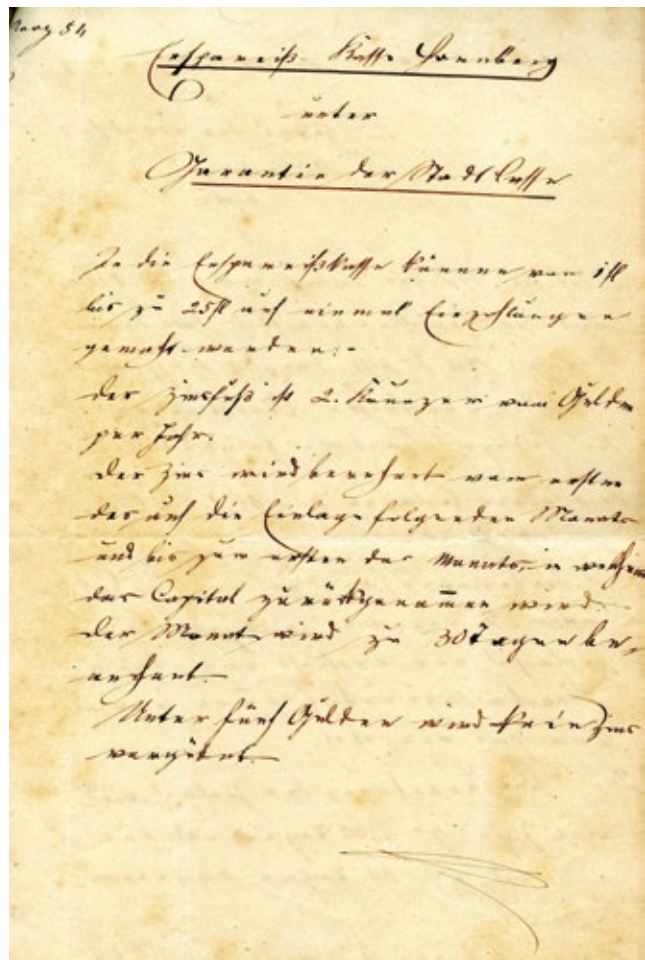 März 54
Ersparniß-Kasse Hornberg
unter
Garantie der Stadtkasse
In die Ersparnißkasse können von 1 fl
bis zu 25 fl auf einmal Einzahlungen
gemacht werden:-
Der Zinsfuß ist 2. Kreuzer vom Gulden
per Jahr.
Der Zins wird berechnet vom ersten
des auf die Einlage folgenden Monats
und bis zum ersten des Monats, in welchem
das Capital zurückgenommen wird.
Der Monat wird zu 30 Tagen be-
rechnet.
Unter fünf Gulden wird kein Zins
vergütet.